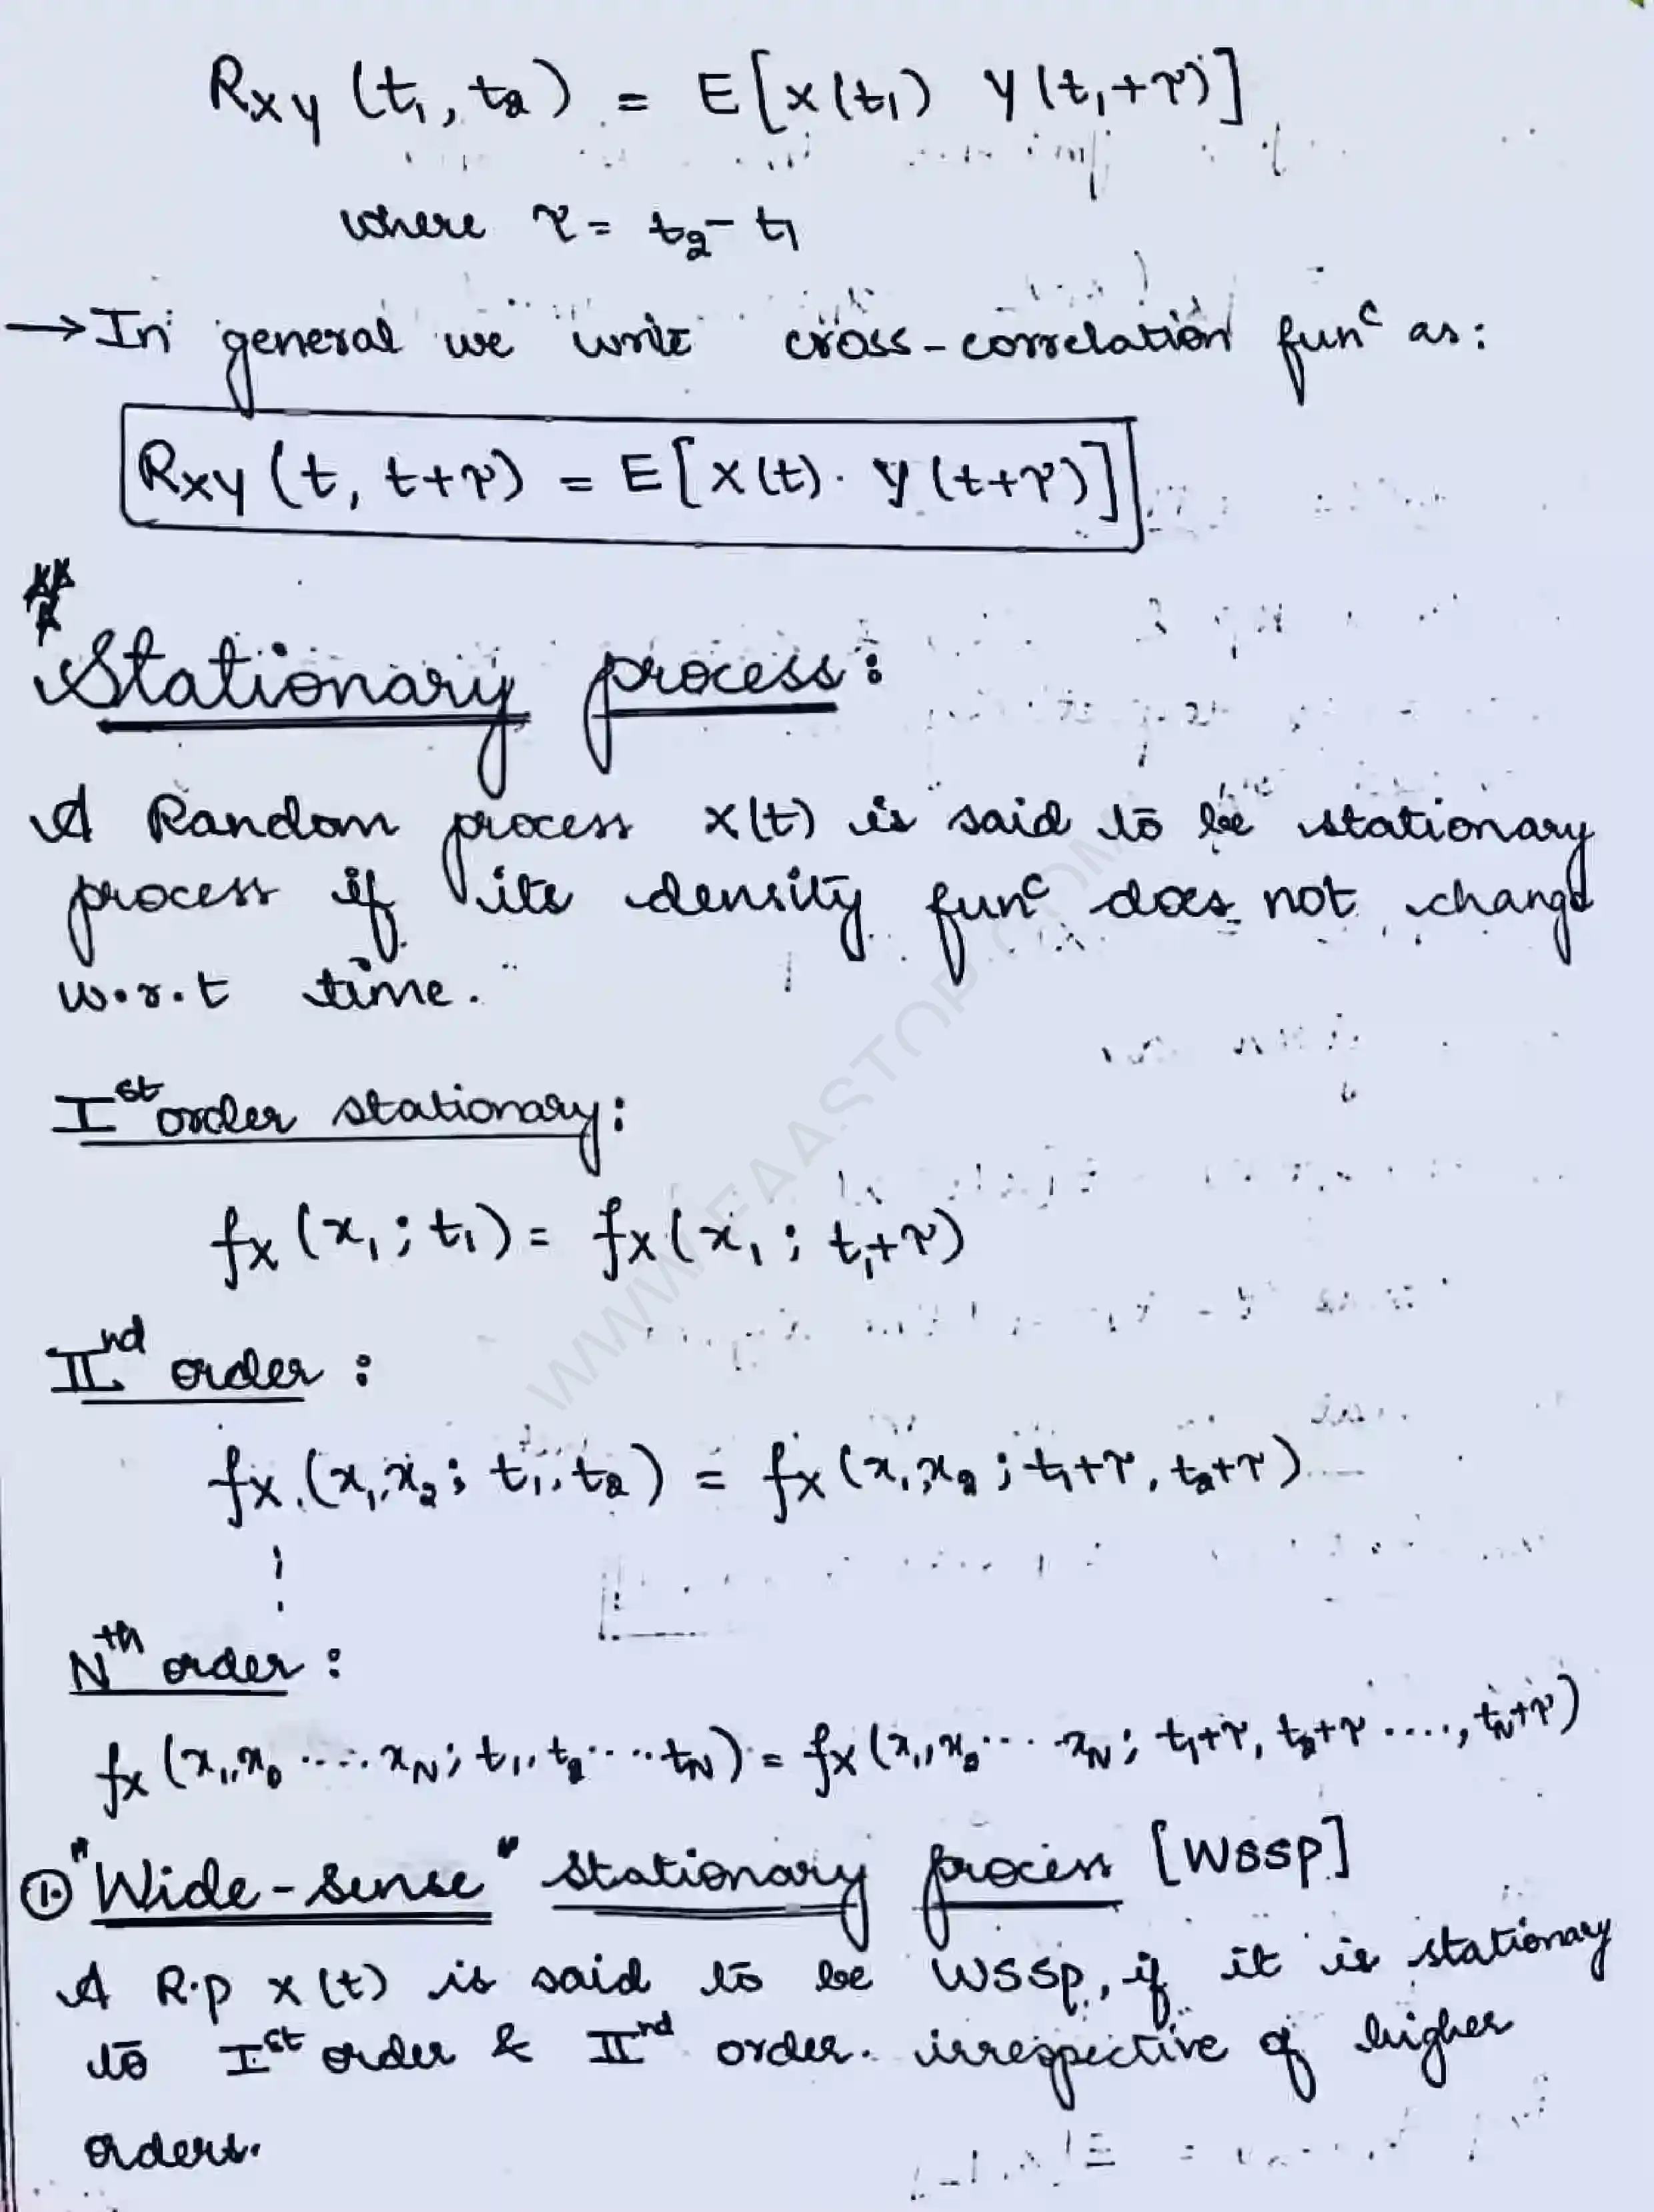 Rxy (t1, t2) = E[x(t1) y(t1+τ)]
where τ = t2 - t1
→ In general we write cross-correlation funᶜ as:
Rxy (t, t+τ) = E[x(t). y(t+τ)]
Stationary process:
A Random process x(t) is said to be stationary
process if its density funᶜ does not change
w.r.t time.
Iˢᵗ order stationary:
fx (x1; t1) = fx (x1; t1+τ)
IIⁿᵈ order:
fx (x1,x2; t1, t2) = fx (x1,x2; t1+τ, t2+τ)
Nᵗʰ order:
fx (x1,x2 ..... xN; t1, t2.....tN) = fx (x1,x2... xN; t1+τ, t2+τ ...., tN+τ)
① "Wide-sense" stationary process [WSSP]
A R.p x(t) is said to be WSSP, if it is stationary
to Iˢᵗ order & IIⁿᵈ order. irrespective of higher
orders.
WWW.FAASTOP.COM